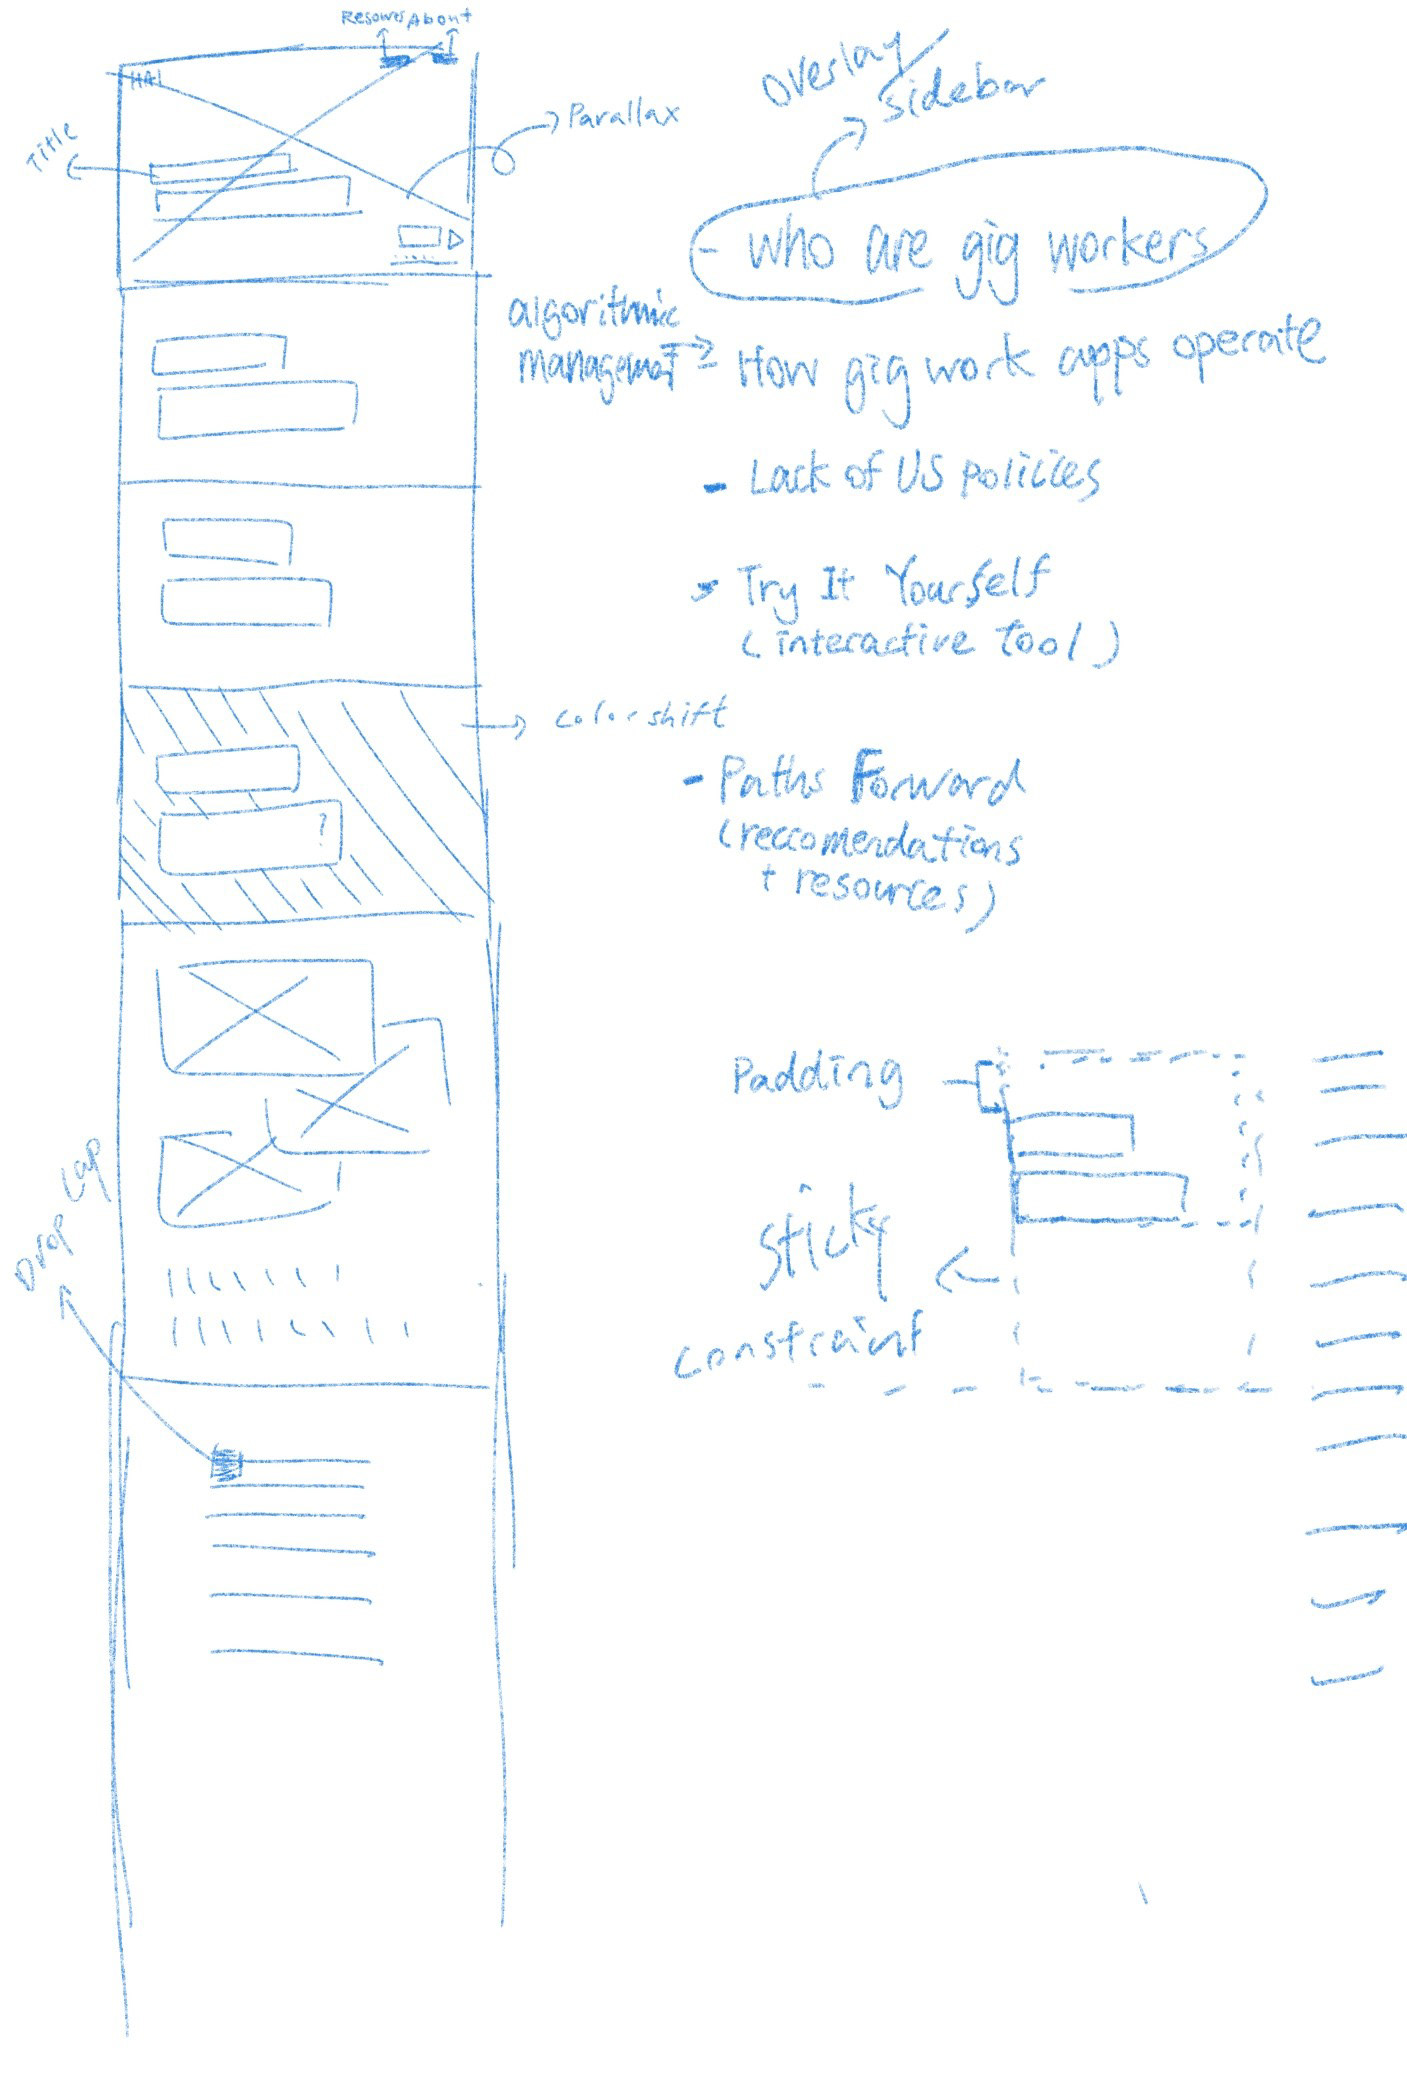 About
HAI
Title
Parallax
Overlay/
sidebar
- who are gig workers
algorithmic
- How gig work apps operate
- Lack of US policies
- Try It Yourself
(interactive tool)
color shift
- Paths Forward
(reccomendations
+ resources)
?
Padding
Sticky
constraint
Drop Cap